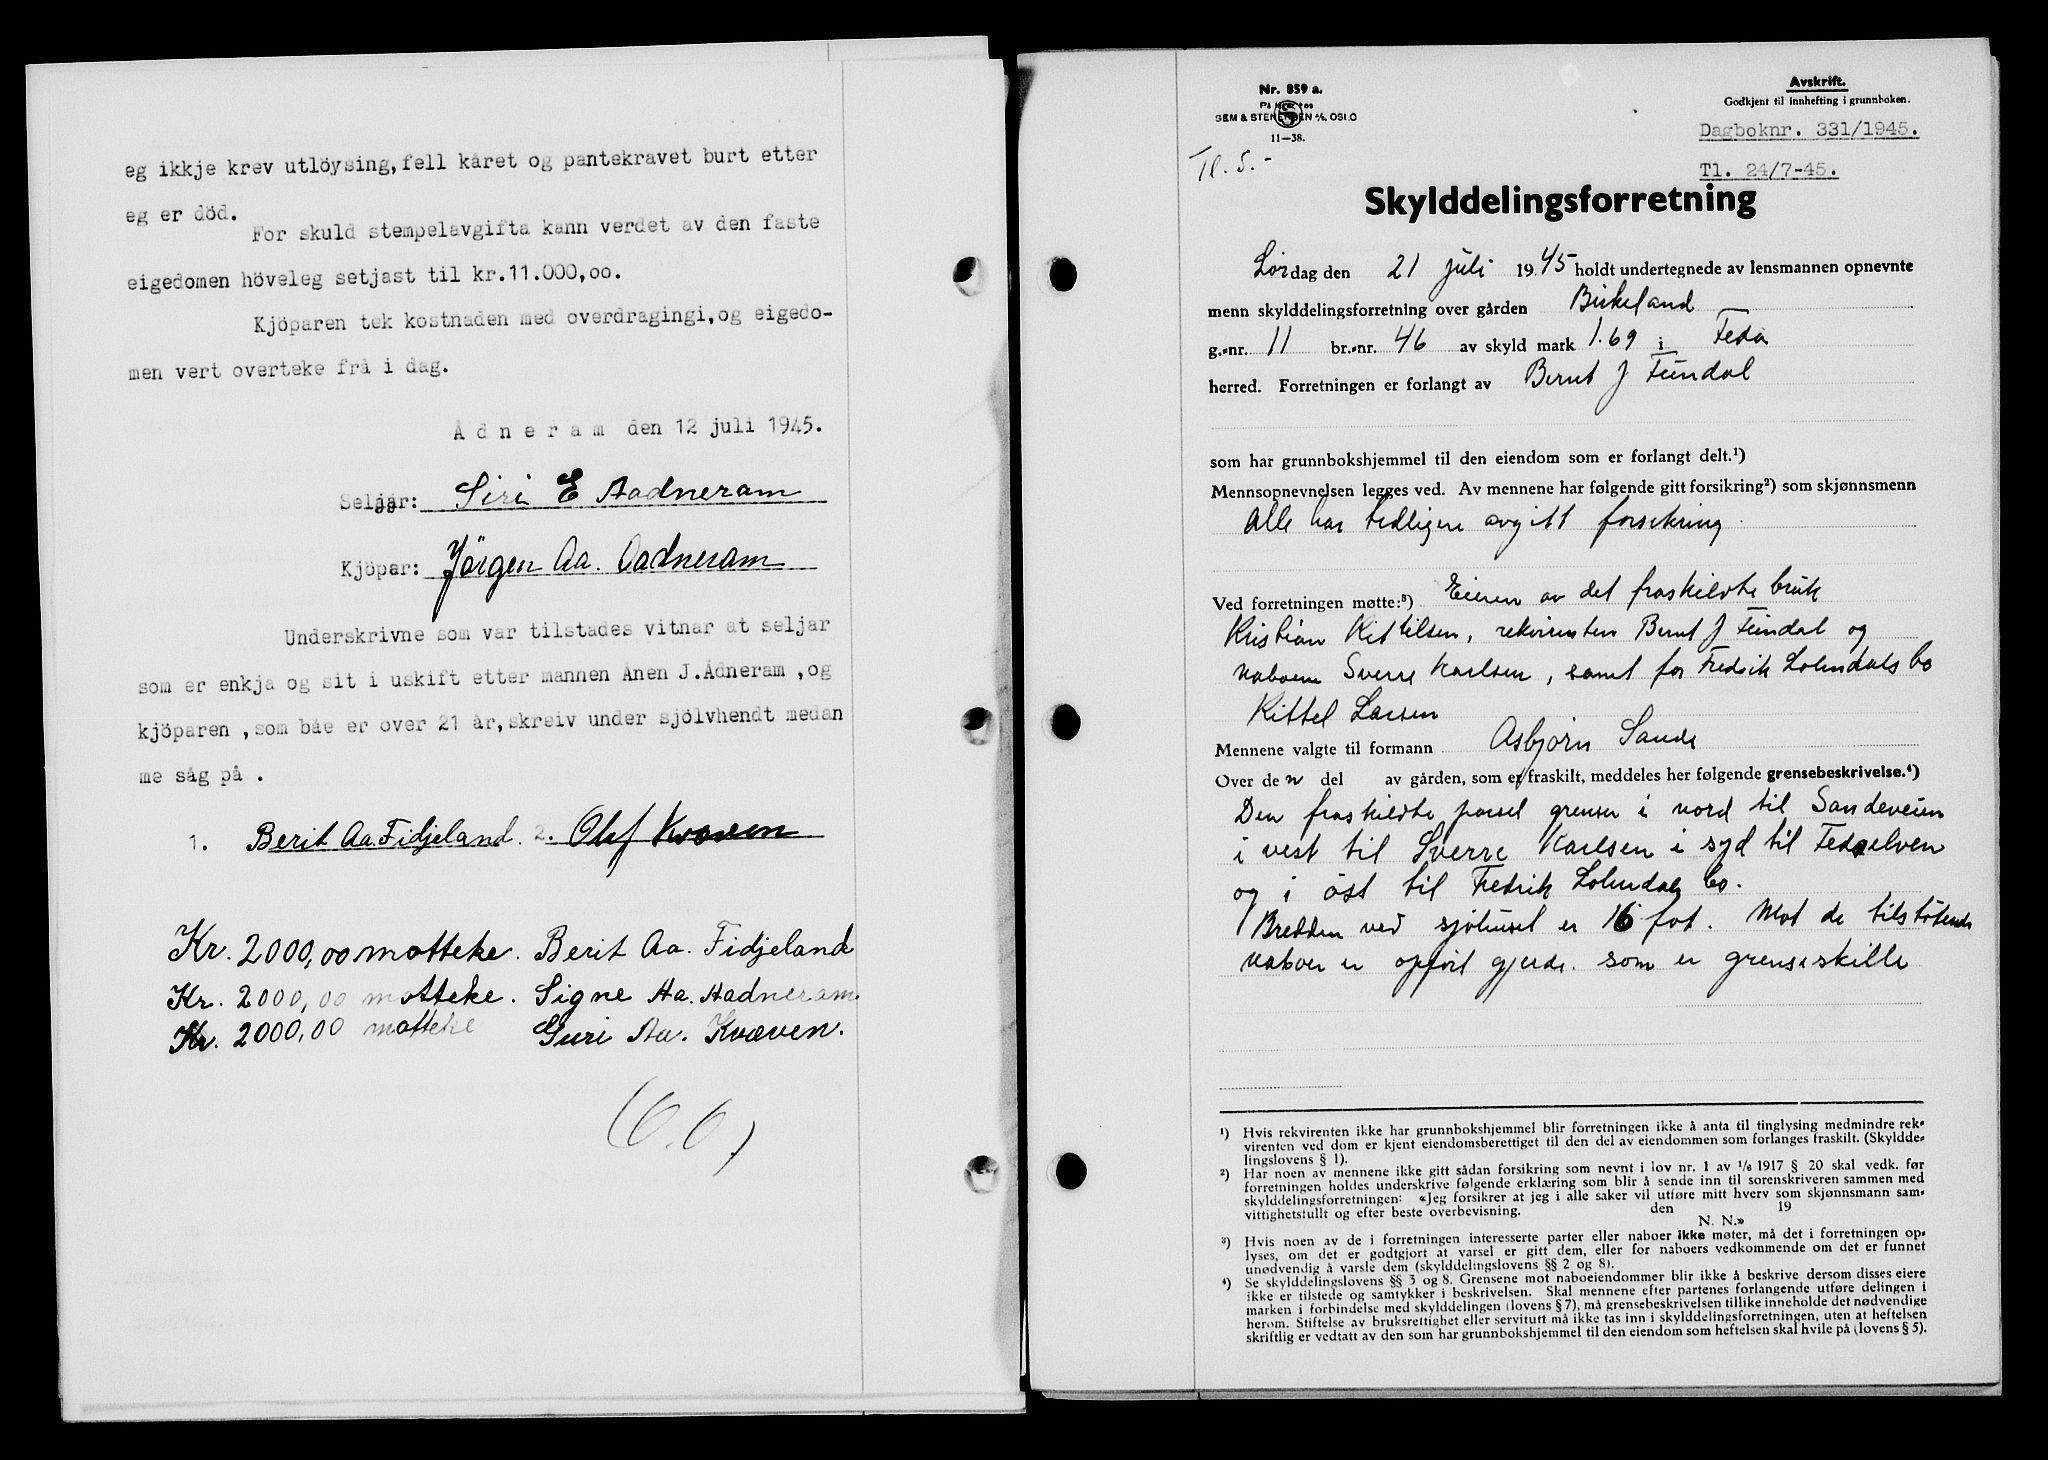 eg ikkje krev utlöysing, fell kåret og pantekravet burt etter
eg er död.
For skuld stempelavgifta kann verdet av den faste
eigedomen höveleg setjast til kr.11.000,oo.
Kjöparen tek kostnaden med overdragingi,og eigedo-
men vert overteke frå i dag.
Ådneram den 12 juli 1945.
Seljar: Siri E Aadneram
Kjöpar: Jörgen Aa. Aadneram
Underskrivne som var tilstades vitnar at seljar
som er enkja og sit i uskift etter mannen Ånen J.Ådneram ,og
kjöparen ,som båe er over 21 år,skreiv under sjölvhendt medan
me såg på .
1. Berit Aa. Fidjeland. 2. Olef Kvæven
Kr. 2000,00 motteke. Berit Aa. Fidjeland
Kr. 2000,00 motteke. Signe Aa. Aadneram.
Kr. 2000,00 motteke Guri Aa. Kvæven.
Nr. 859 a.
SEM & STENERSEN A/S, OSLO
11—38.
Avskrift.
Godkjent til innhefting i grunnboken.
Dagboknr. 331/1945.
Tl. 24/7-45.
Tl. 5.-
Skylddelingsforretning
Lördag den 21 juli 1945 holdt undertegnede av lensmannen opnevnte
menn skylddelingsforretning over gården Birkeland
g.-nr. 11 br.-nr. 46 av skyld mark 1.69 i Feda
herred. Forretningen er forlangt av Bernt J Feindal
som har grunnbokshjemmel til den eiendom som er forlangt delt.¹)
Mennsopnevnelsen legges ved. Av mennene har følgende gitt forsikring²) som skjønnsmenn
Alle har tidligere avgitt forsikring.
Ved forretningen møtte:³) Eieren av det fraskildte bruk
Kristian Kittilsen, rekvirenten Bernt J Feindal og
naboene Sverre Karlsen, samt for Fredrik Lohndals bo
Kittel Larsen
Mennene valgte til formann Asbjørn Sande
Over den del av gården, som er fraskilt, meddeles her følgende grensebeskrivelse.⁴)
Den fraskildte parsel grenser i nord til Sandeveien
i vest til Sverre Karlsen i syd til Fedaelven
og i öst til Fredrik Lohndals bo.
Bredden ved sjöhuset er 16 fot. Mot de tilstötende
naboer er opfört gjerde. som er grenseskille
¹) Hvis rekvirenten ikke har grunnbokshjemmel blir forretningen ikke å anta til tinglysing medmindre rek-
virenten ved dom er kjent eiendomsberettiget til den del av eiendommen som forlanges fraskilt. (Skyldde-
lingslovens § 1).
²) Har noen av mennene ikke gitt sådan forsikring som nevnt i lov nr. 1 av 1/6 1917 § 20 skal vedk. før
forretningen holdes underskrive følgende erklæring som blir å sende inn til sorenskriveren sammen med
skylddelingsforretningen: «Jeg forsikrer at jeg i alle saker vil utføre mitt hverv som skjønnsmann sam-
vittighetsfullt og efter beste overbevisning. den 19
N. N.»
³) Hvis noen av de i forretningen interesserte parter eller naboer ikke møter, må det i forretningen op-
lyses, om det er godtgjort at varsel er gitt dem, eller for naboers vedkommende om det er funnet
unødvendig å varsle dem (skylddelingslovens §§ 2 og 8).
⁴) Se skylddelingslovens §§ 3 og 8. Grensene mot naboeiendommer blir ikke å beskrive dersom disses eiere
ikke er tilstede og samtykker i beskrivelsen. Skal mennene efter partenes forlangende utføre delingen i
marken i forbindelse med skylddelingen (lovens § 7), må grensebeskrivelsen tillike inneholde det nødvendige
herom. Stiftelse av bruksrettighet eller servitutt må ikke tas inn i skylddelingsforretningen, uten at heftelsen
skriftlig er vedtatt av den som har grunnbokshjemmel til den eiendom som heftelsen skal hvile på (lovens § 5).